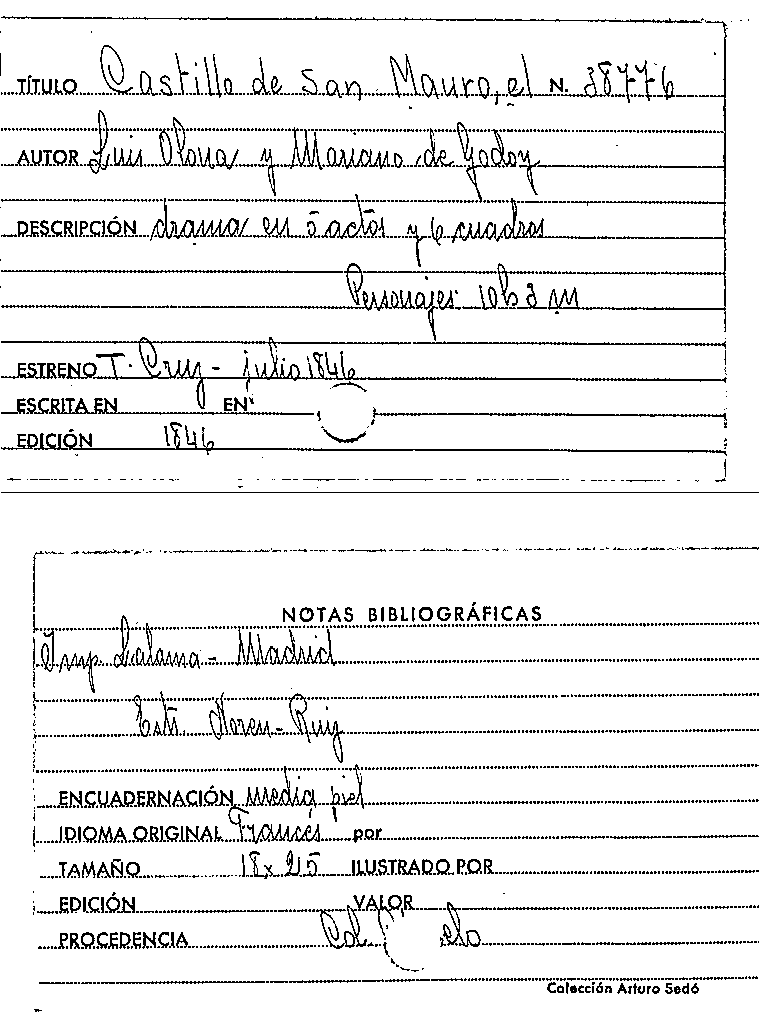 TÍTULO Castillo de San Mauro, el N. 38776
AUTOR Luis Olona y Mariano de Godoy
DESCRIPCIÓN drama en 5 actos y 6 cuadros
Personajes: 10 h 3 m
ESTRENO T. Cruz - julio 1846
ESCRITA EN EN
EDICIÓN 1846
NOTAS BIBLIOGRÁFICAS
Imp Lalama - Madrid
Estr. Noren - Ruiz
ENCUADERNACIÓN media piel
IDIOMA ORIGINAL Francés por
TAMAÑO 18 x 25 ILUSTRADO POR
EDICIÓN VALOR
PROCEDENCIA Col.
Colección Arturo Sedó